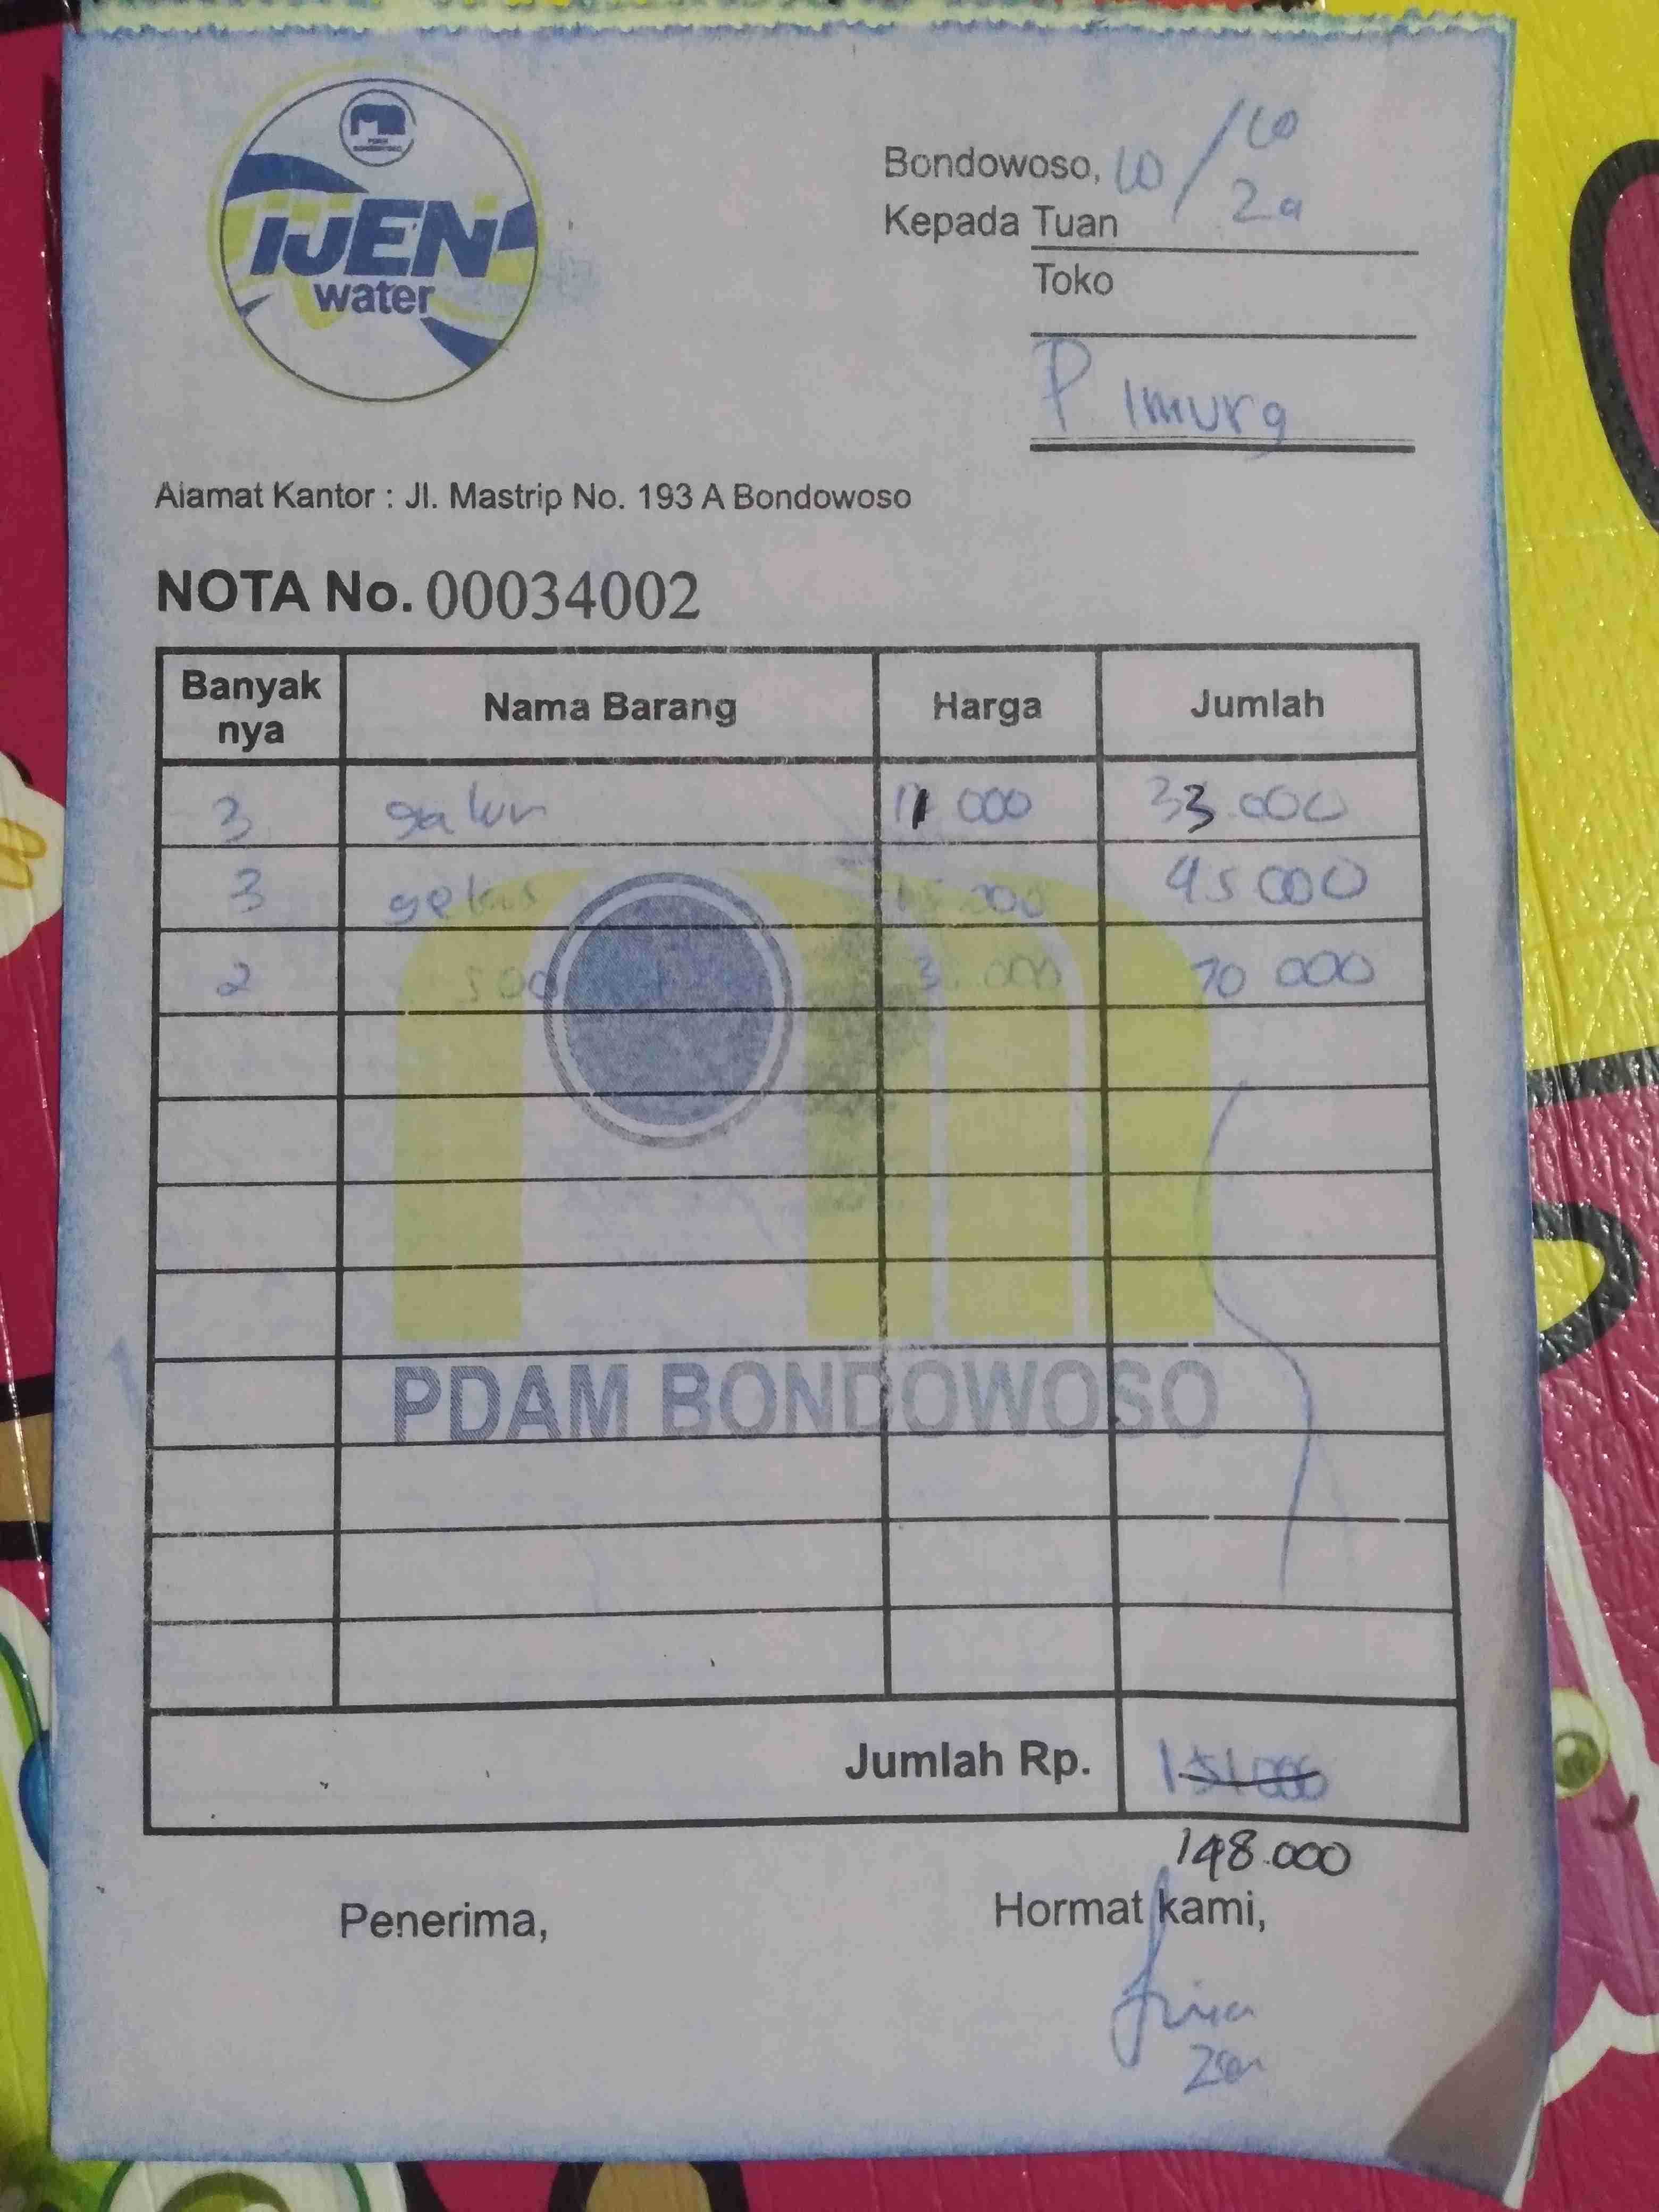 IJEN
water
Bondowoso, 10/10
Kepada Tuan
Toko
P. Imurg
Alamat Kantor : Jl. Mastrip No. 193 A Bondowoso
NOTA No. 00034002
Banyak nya Nama Barang Harga Jumlah
3 galon 11 000 33.000
3 gelas 15 000 45 000
2 500 70 000
PDAM BONDOWOSO
Jumlah Rp. 151.000
148.000
Penerima, Hormat kami,